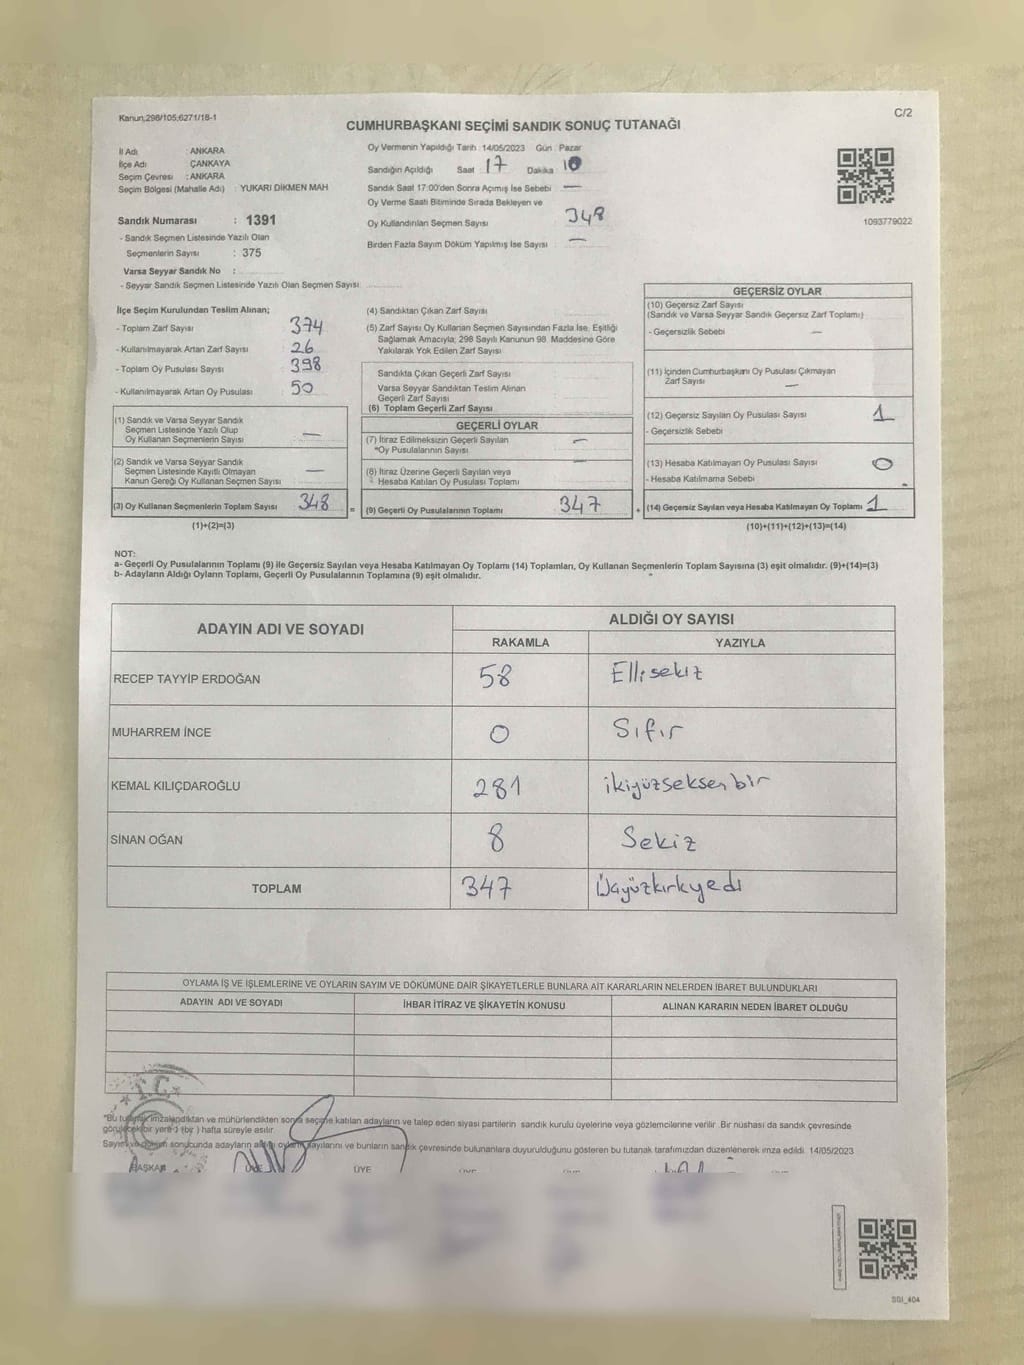 Kanun,298/105;6271/18-1
C/2
CUMHURBAŞKANI SEÇİMİ SANDIK SONUÇ TUTANAĞI
İl Adı : ANKARA
İlçe Adı : ÇANKAYA
Seçim Çevresi : ANKARA
Seçim Bölgesi (Mahalle Adı) : YUKARI DİKMEN MAH
Sandık Numarası : 1391
- Sandık Seçmen Listesinde Yazılı Olan
Seçmenlerin Sayısı : 375
Varsa Seyyar Sandık No :
- Seyyar Sandık Seçmen Listesinde Yazılı Olan Seçmen Sayısı
Oy Vermenin Yapıldığı Tarih : 14/05/2023 Gün : Pazar
Sandığın Açıldığı Saat 17 Dakika 10
Sandık Saat 17:00'den Sonra Açımış İse Sebebi —
Oy Verme Saati Bitiminde Sırada Bekleyen ve
Oy Kullandırılan Seçmen Sayısı 348
Birden Fazla Sayım Döküm Yapılmış İse Sayısı —
1093779022
İlçe Seçim Kurulundan Teslim Alınan;
- Toplam Zarf Sayısı 374
- Kullanılmayarak Artan Zarf Sayısı 26
- Toplam Oy Pusulası Sayısı 398
- Kullanılmayarak Artan Oy Pusulası 50
(1) Sandık ve Varsa Seyyar Sandık
Seçmen Listesinde Yazılı Olup
Oy Kullanan Seçmenlerin Sayısı —
(2) Sandık ve Varsa Seyyar Sandık
Seçmen Listesinde Kayıtlı Olmayan
Kanun Gereği Oy Kullanan Seçmen Sayısı —
(3) Oy Kullanan Seçmenlerin Toplam Sayısı 348
(1)+(2)=(3)
(4) Sandıktan Çıkan Zarf Sayısı
(5) Zarf Sayısı Oy Kullanan Seçmen Sayısından Fazla İse, Eşitliği
Sağlamak Amacıyla, 298 Sayılı Kanunun 98. Maddesine Göre
Yakılarak Yok Edilen Zarf Sayısı
Sandıkta Çıkan Geçerli Zarf Sayısı
Varsa Seyyar Sandıktan Teslim Alınan
Geçerli Zarf Sayısı
(6) Toplam Geçerli Zarf Sayısı
GEÇERLİ OYLAR
(7) İtiraz Edilmeksizin Geçerli Sayılan
*Oy Pusulalarının Sayısı —
(8) İtiraz Üzerine Geçerli Sayılan veya
Hesaba Katılan Oy Pusulası Toplamı —
= (9) Geçerli Oy Pusulalarının Toplamı 347 +
GEÇERSİZ OYLAR
(10) Geçersiz Zarf Sayısı
(Sandık ve Varsa Seyyar Sandık Geçersiz Zarf Toplamı)
- Geçersizlik Sebebi —
(11) İçinden Cumhurbaşkanı Oy Pusulası Çıkmayan
Zarf Sayısı —
(12) Geçersiz Sayılan Oy Pusulası Sayısı 1
- Geçersizlik Sebebi
(13) Hesaba Katılmayan Oy Pusulası Sayısı 0
- Hesaba Katılmama Sebebi
(14) Geçersiz Sayılan veya Hesaba Katılmayan Oy Toplamı 1
(10)+(11)+(12)+(13)=(14)
NOT:
a- Geçerli Oy Pusulalarının Toplamı (9) ile Geçersiz Sayılan veya Hesaba Katılmayan Oy Toplamı (14) Toplamları, Oy Kullanan Seçmenlerin Toplam Sayısına (3) eşit olmalıdır. (9)+(14)=(3)
b- Adayların Aldığı Oyların Toplamı, Geçerli Oy Pusulalarının Toplamına (9) eşit olmalıdır.
ADAYIN ADI VE SOYADI
ALDIĞI OY SAYISI
RAKAMLA YAZIYLA
RECEP TAYYİP ERDOĞAN 58 Ellisekiz
MUHARREM İNCE 0 Sıfır
KEMAL KILIÇDAROĞLU 281 ikiyüzseksenbir
SİNAN OĞAN 8 Sekiz
TOPLAM 347 Üçyüzkırkyedi
OYLAMA İŞ VE İŞLEMLERİNE VE OYLARIN SAYIM VE DÖKÜMÜNE DAİR ŞİKAYETLERLE BUNLARA AİT KARARLARIN NELERDEN İBARET BULUNDUKLARI
ADAYIN ADI VE SOYADI İHBAR İTİRAZ VE ŞİKAYETİN KONUSU ALINAN KARARIN NEDEN İBARET OLDUĞU
T.C.
*Bu tutanak imzalandıktan ve mühürlendikten sonra seçime katılan adayların ve talep eden siyasi partilerin sandık kurulu üyelerine veya gözlemcilerine verilir. Bir nüshası da sandık çevresinde
görülecek bir yere 1 (bir) hafta süreyle asılır.
Sayım ve döküm sonucunda adayların aldığı oyların sayılarını ve bunların sandık çevresinde bulunanlara duyurulduğunu gösteren bu tutanak tarafımızdan düzenlenerek imza edildi. 14/05/2023
BAŞKAN ÜYE ÜYE
SGI_404